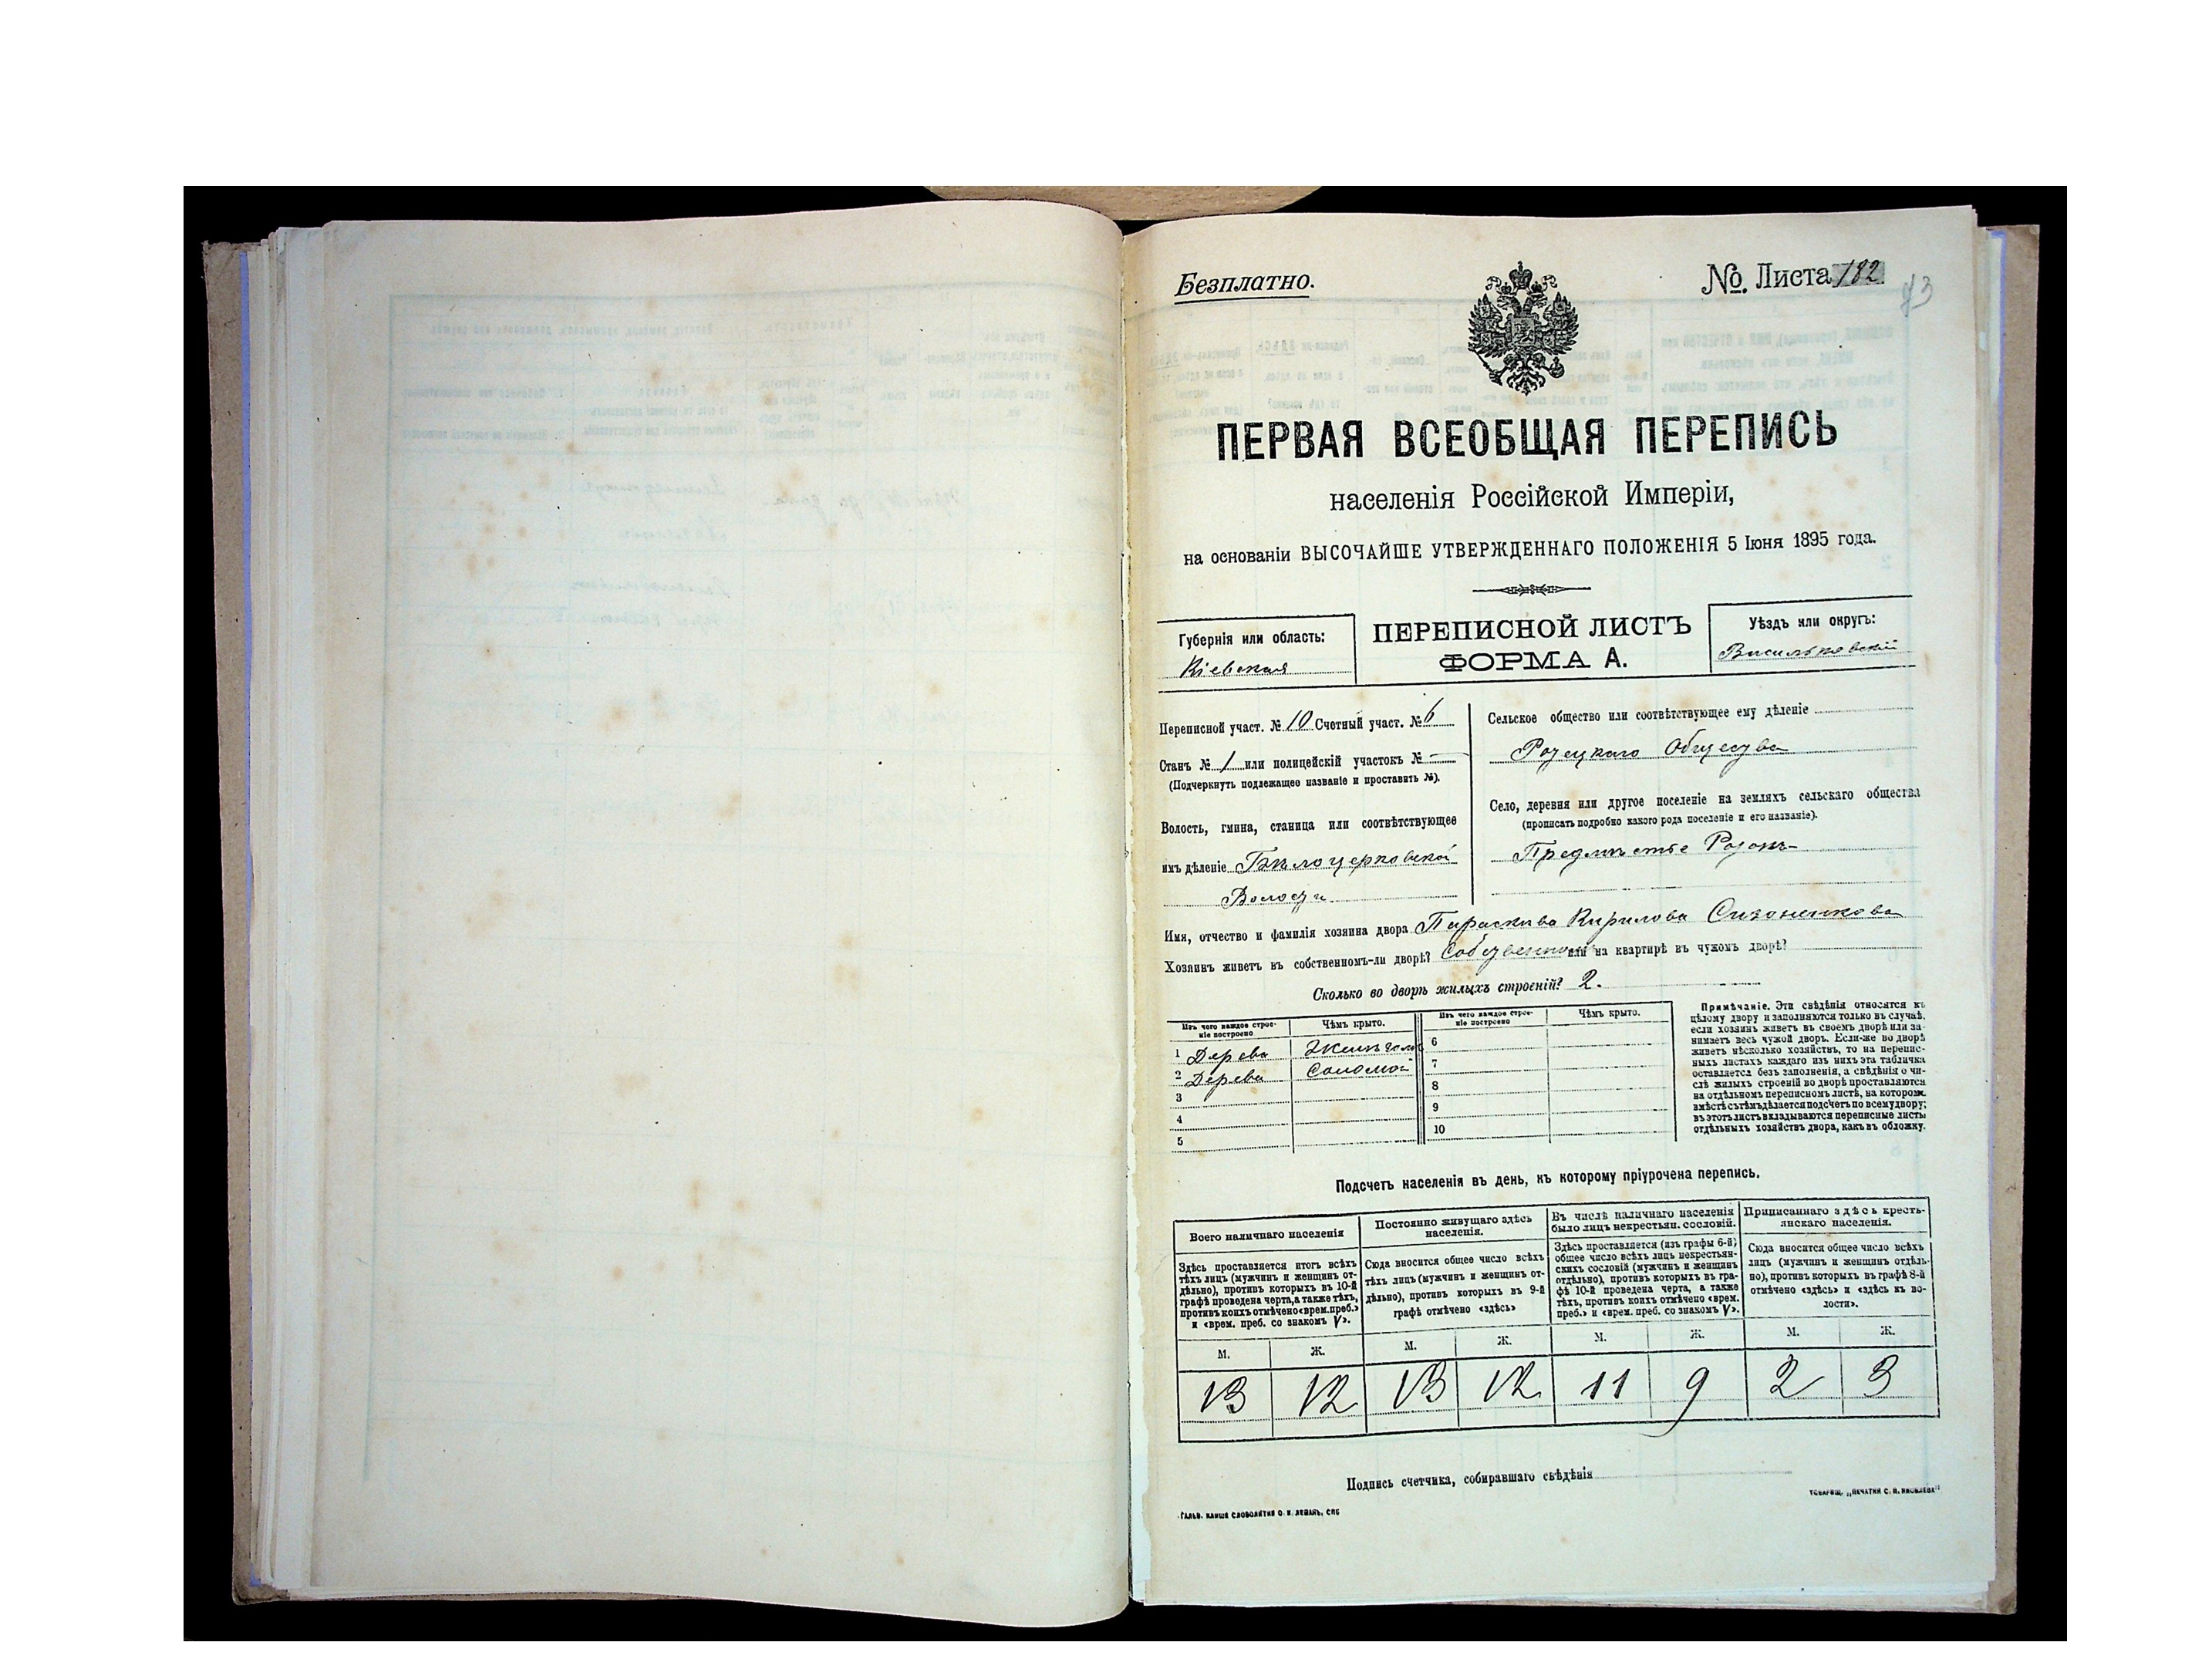 Безплатно.
№. Листа 182
73
ПЕРВАЯ ВСЕОБЩАЯ ПЕРЕПИСЬ
населенія Россійской Имперіи,
на основаніи ВЫСОЧАЙШЕ УТВЕРЖДЕННАГО ПОЛОЖЕНІЯ 5 Іюня 1895 года.
Губернія или область:
Кіевская
ПЕРЕПИСНОЙ ЛИСТЪ
ФОРМА А.
Уѣздъ или округъ:
Васильковскій
Переписной участ. № 10 Счетный участ. № 6
Станъ № 1 или полицейскій участокъ № —
(Подчеркнуть подлежащее названіе и проставить №).
Волость, гмина, станица или соотвѣтствующее
имъ дѣленіе Бѣлоцерковской
Волости
Сельское общество или соотвѣтствующее ему дѣленіе
Ротецкаго Общества
Село, деревня или другое поселеніе на земляхъ сельскаго общества
(прописать подробно какого рода поселеніе и его названіе).
Предмѣстье Ротокъ
Имя, отчество и фамилія хозяина двора Параскева Кирилова Сизоненкова
Хозяинъ живетъ въ собственномъ-ли дворѣ? Собственномъ или на квартирѣ въ чужомъ дворѣ?
Сколько во дворѣ жилыхъ строеній? 2.
Изъ чего каждое строе-
ніе построено
Чѣмъ крыто.
Изъ чего каждое строе-
ніе построено
Чѣмъ крыто.
1 Дерева Желѣзомъ 6
2 Дерева Соломой 7
3 8
4 9
5 10
Примѣчаніе. Эти свѣдѣнія относятся къ
цѣлому двору и заполняются только въ случаѣ,
если хозяинъ живетъ въ своемъ дворѣ или за-
нимаетъ весь чужой дворъ. Если-же во дворѣ
живетъ нѣсколько хозяйствъ, то на перепис-
ныхъ листахъ каждаго изъ нихъ эта табличка
оставляется безъ заполненія, а свѣдѣнія о чи-
слѣ жилыхъ строеній во дворѣ проставляются
на отдѣльномъ переписномъ листѣ, на которомъ
вмѣстѣ съ тѣмъ дѣлается подсчетъ по всему двору;
въ этотъ листъ вкладываются переписные листы
отдѣльныхъ хозяйствъ двора, какъ въ обложку.
Подсчетъ населенія въ день, къ которому пріурочена перепись.
Всего наличнаго населенія
Здѣсь проставляется итогъ всѣхъ
тѣхъ лицъ (мужчинъ и женщинъ от-
дѣльно), противъ которыхъ въ 10-й
графѣ проведена черта, а также тѣхъ,
противъ коихъ отмѣчено «врем. преб.»
и «врем. преб. со знакомъ V».
Постоянно живущаго здѣсь
населенія.
Сюда вносится общее число всѣхъ
тѣхъ лицъ (мужчинъ и женщинъ от-
дѣльно), противъ которыхъ въ 9-й
графѣ отмѣчено «здѣсь»
Въ числѣ наличнаго населенія
было лицъ некрестьян. сословій.
Здѣсь проставляется (изъ графы 6-й)
общее число всѣхъ лицъ некрестьян-
скихъ сословій (мужчинъ и женщинъ
отдѣльно), противъ которыхъ въ гра-
фѣ 10-й проведена черта, а также
тѣхъ, противъ коихъ отмѣчено «врем.
преб.» и «врем. преб. со знакомъ V».
Приписаннаго здѣсь кресть-
янскаго населенія.
Сюда вносится общее число всѣхъ
лицъ (мужчинъ и женщинъ отдѣль-
но), противъ которыхъ въ графѣ 8-й
отмѣчено «здѣсь» и «здѣсь къ во-
лости».
М. Ж. М. Ж. М. Ж. М. Ж.
13 12 13 12 11 9 2 3
Подпись счетчика, собиравшаго свѣдѣнія
ГАЛЬВ. КЛИШЕ СЛОВОЛИТНИ О. И. ЛЕМАНЪ, СПБ
ТОВАРИЩ. „ПЕЧАТНЯ С. П. ЯКОВЛЕВА“